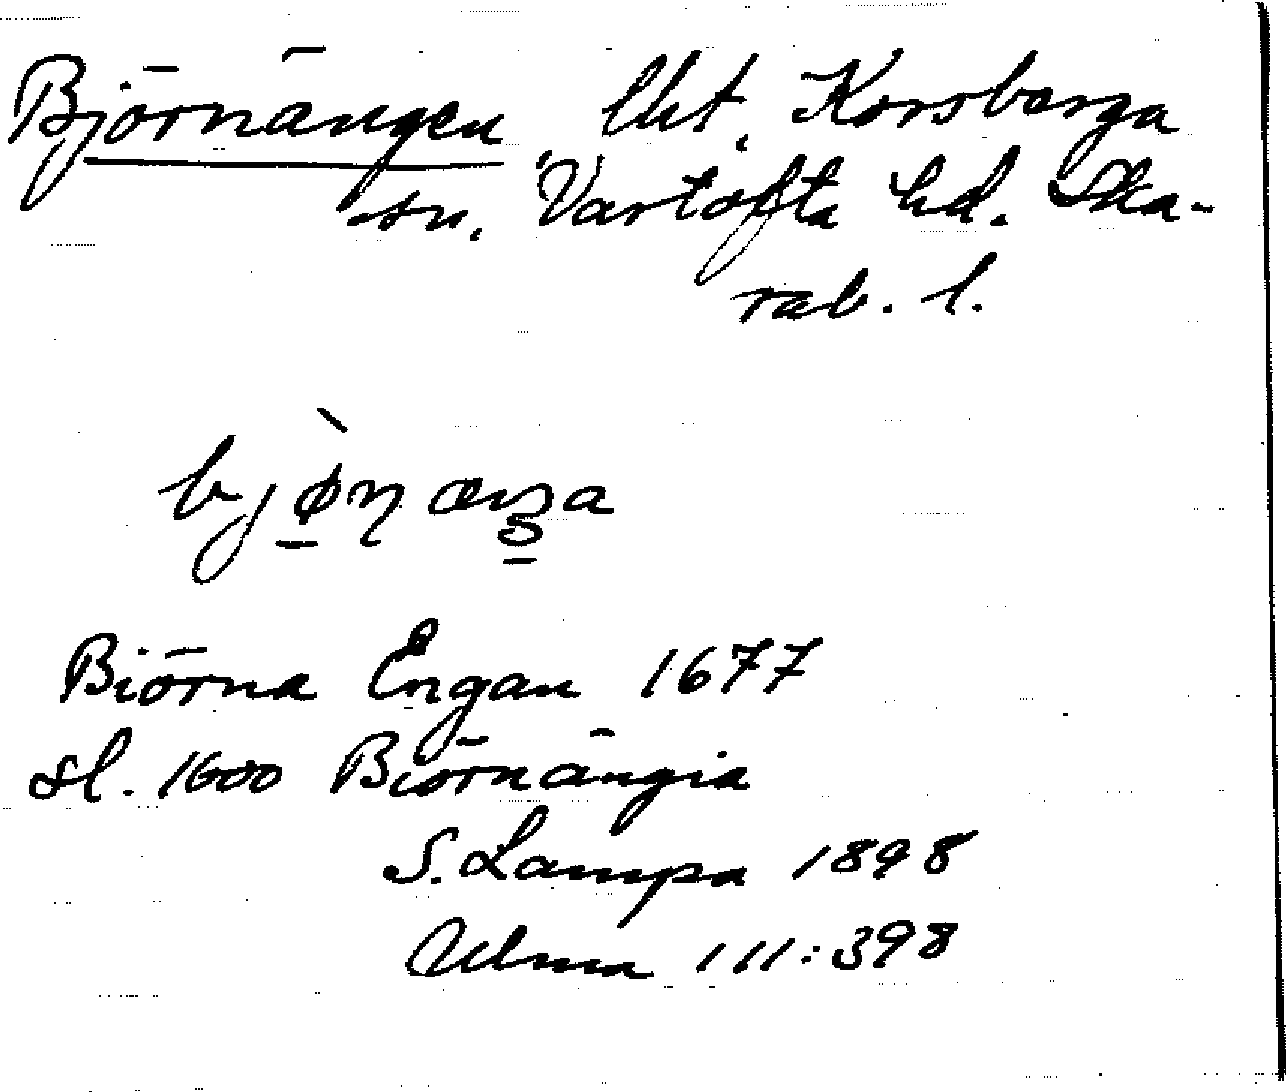 Björnängen lht, Korsberga
sn, Vartofta hd. Ska-
rab. l.
bjø̀ṉæŋa
Biörna Engan 1677
sl. 1600 Biörnängia
S. Lampa 1898
Ulma 111:398